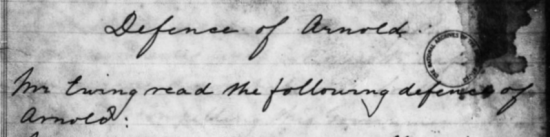 Defence of Arnold.
Mr Ewing read the following defence of
Arnold: